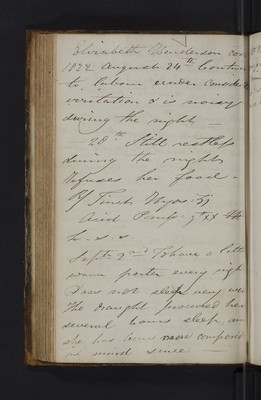 Elizabeth Henderson con
1822 August 24th Continu
to labour under consider
irritation & is noisy
during the night —
28th Still restless
during the night
Refuses her food —
Rx Tinct Hyos:
Acid
h.s.s.
Septr 2nd To have a little
warm porter every nigh
Does not sleep very we
The draught procured her
several hours sleep, an
she has been more composed
in mind since —